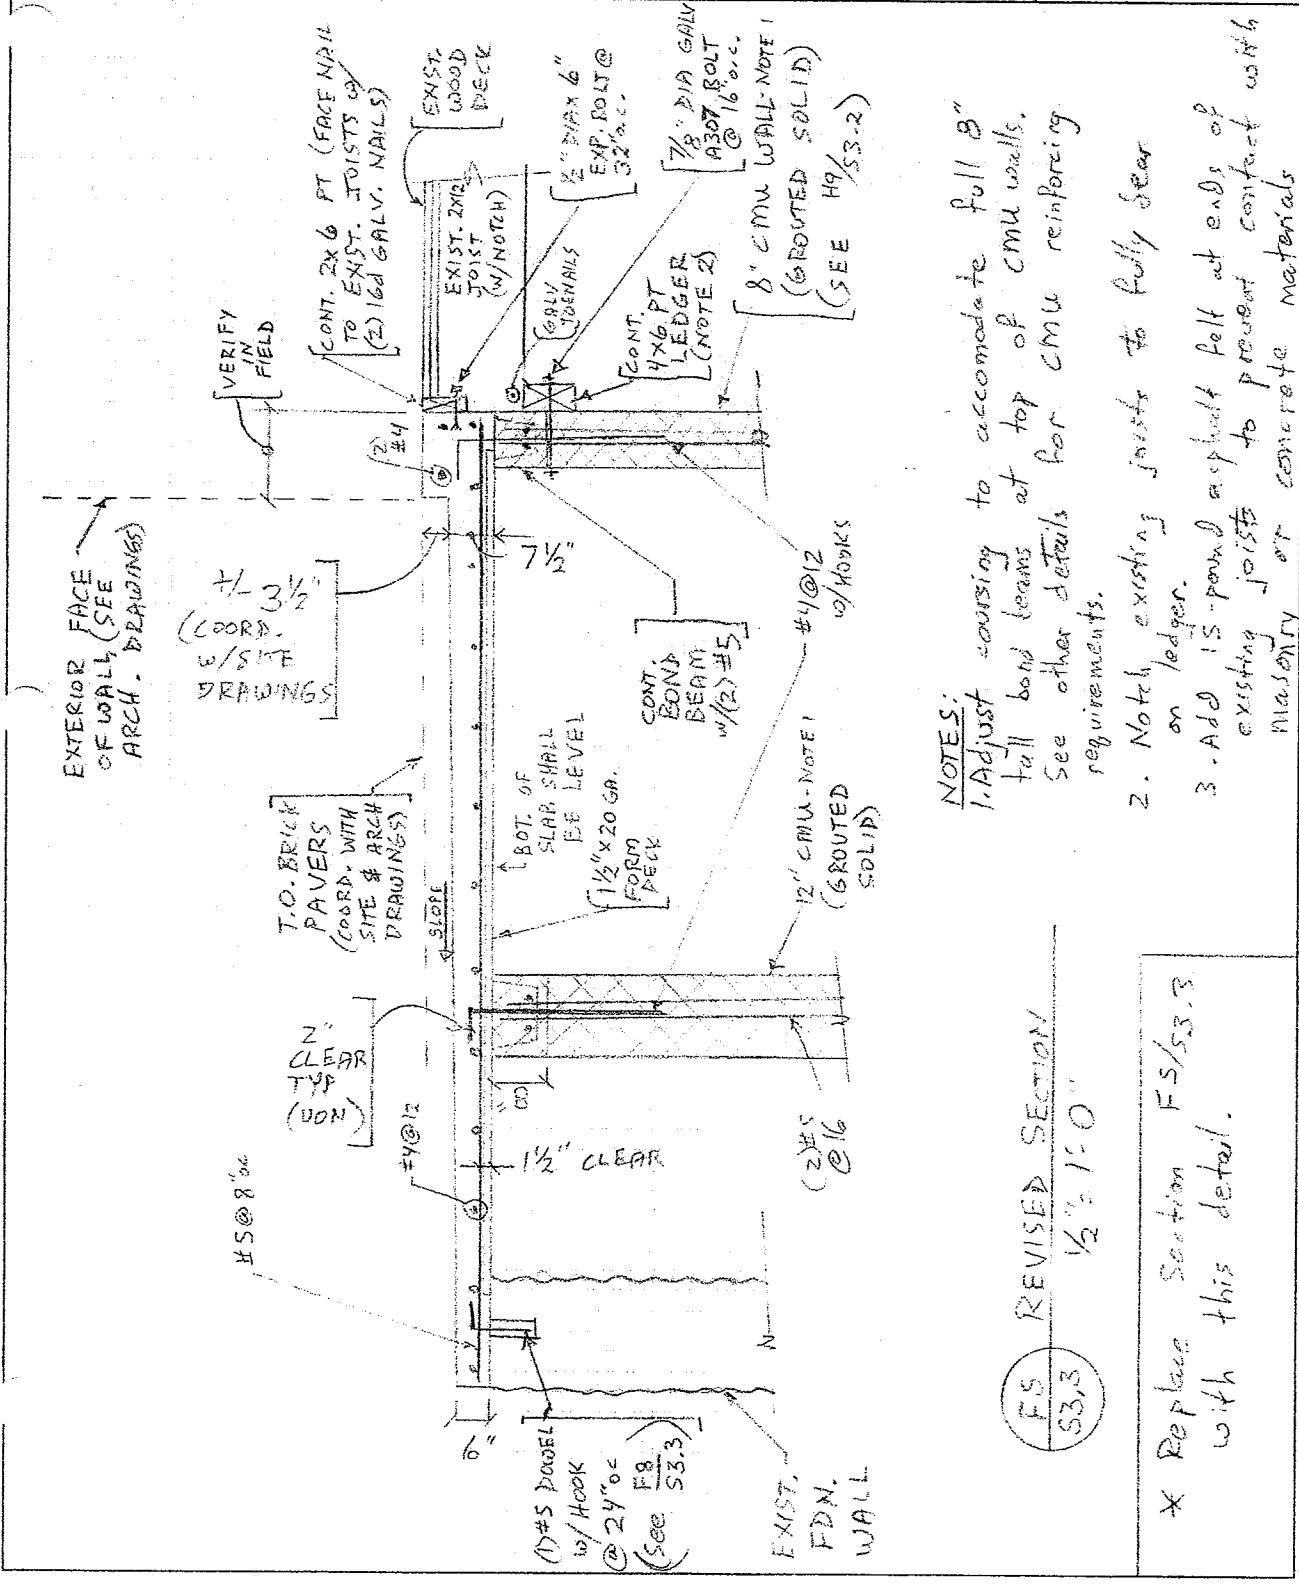 EXTERIOR FACE
OF WALL (SEE
ARCH. DRAWINGS)
VERIFY
IN
FIELD
CONT. 2x6 PT (FACE NAIL
TO EXIST. JOISTS W/
(2) 16d GALV. NAILS)
EXIST.
WOOD
DECK
EXIST. 2x12
JOIST
(W/NOTCH)
1/2" DIA x 6"
EXP. BOLT @
32" o.c.
7/8" DIA GALV
A307 BOLT
@ 16" o.c.
GALV
TOENAILS
CONT.
4x6 PT
LEDGER
(NOTE 2)
8" CMU WALL-NOTE 1
(GROUTED SOLID)
(SEE H9/S3.2)
(2)
#4
+/- 3 1/2"
(COORD.
W/SITE
DRAWINGS
7 1/2"
T.O. BRICK
PAVERS
(COORD. WITH
SITE & ARCH
DRAWINGS)
SLOPE
BOT. OF
SLAB SHALL
BE LEVEL
1 1/2" x 20 GA.
FORM
DECK
CONT.
BOND
BEAM
W/(2) #5
#4@12
W/HOOKS
12" CMU-NOTE 1
(GROUTED
SOLID)
2"
CLEAR
TYP
(UON)
#4@12
8"
1 1/2" CLEAR
(2)#5
@16
#5@8"oc
6"
(1)#5 DOWEL
W/HOOK
@ 24"oc
(See F8/S3.3)
EXIST.
FDN.
WALL
NOTES:
1. Adjust coursing to accomodate full 8"
tall bond beams at top of CMU walls.
See other details for CMU reinforcing
requirements.
2. Notch existing joists to fully bear
on ledger.
3. Add 15-pound asphalt felt at ends of
existing joists to prevent contact with
masonry or concrete materials
F5
S3.3
REVISED SECTION
1/2" = 1'-0"
* Replace Section F5/S3.3
with this detail.